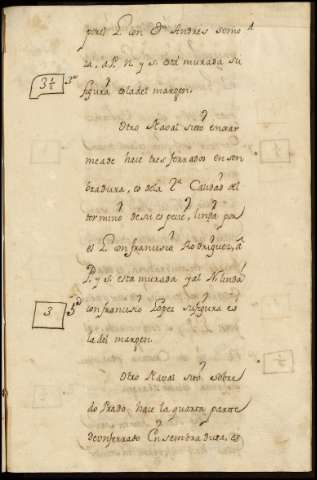 por el L. con Dn. Andres somo
za, al P. N. y S. está murada su
3½ figura es la del margen.
Otro Naval sito en car
meade hace tres ferrados en sem
bradura, es de la 2ª Calidad del
termino de su especie, linda por
el L. con francisco Rodriguez, al
P. y S. esta murada y al N. linda
3 con francisco Lopez su figura es
la del margen.
Otro Naval sito sobre
do Prado, hace la quarta parte
de un ferrado En sembradura, es